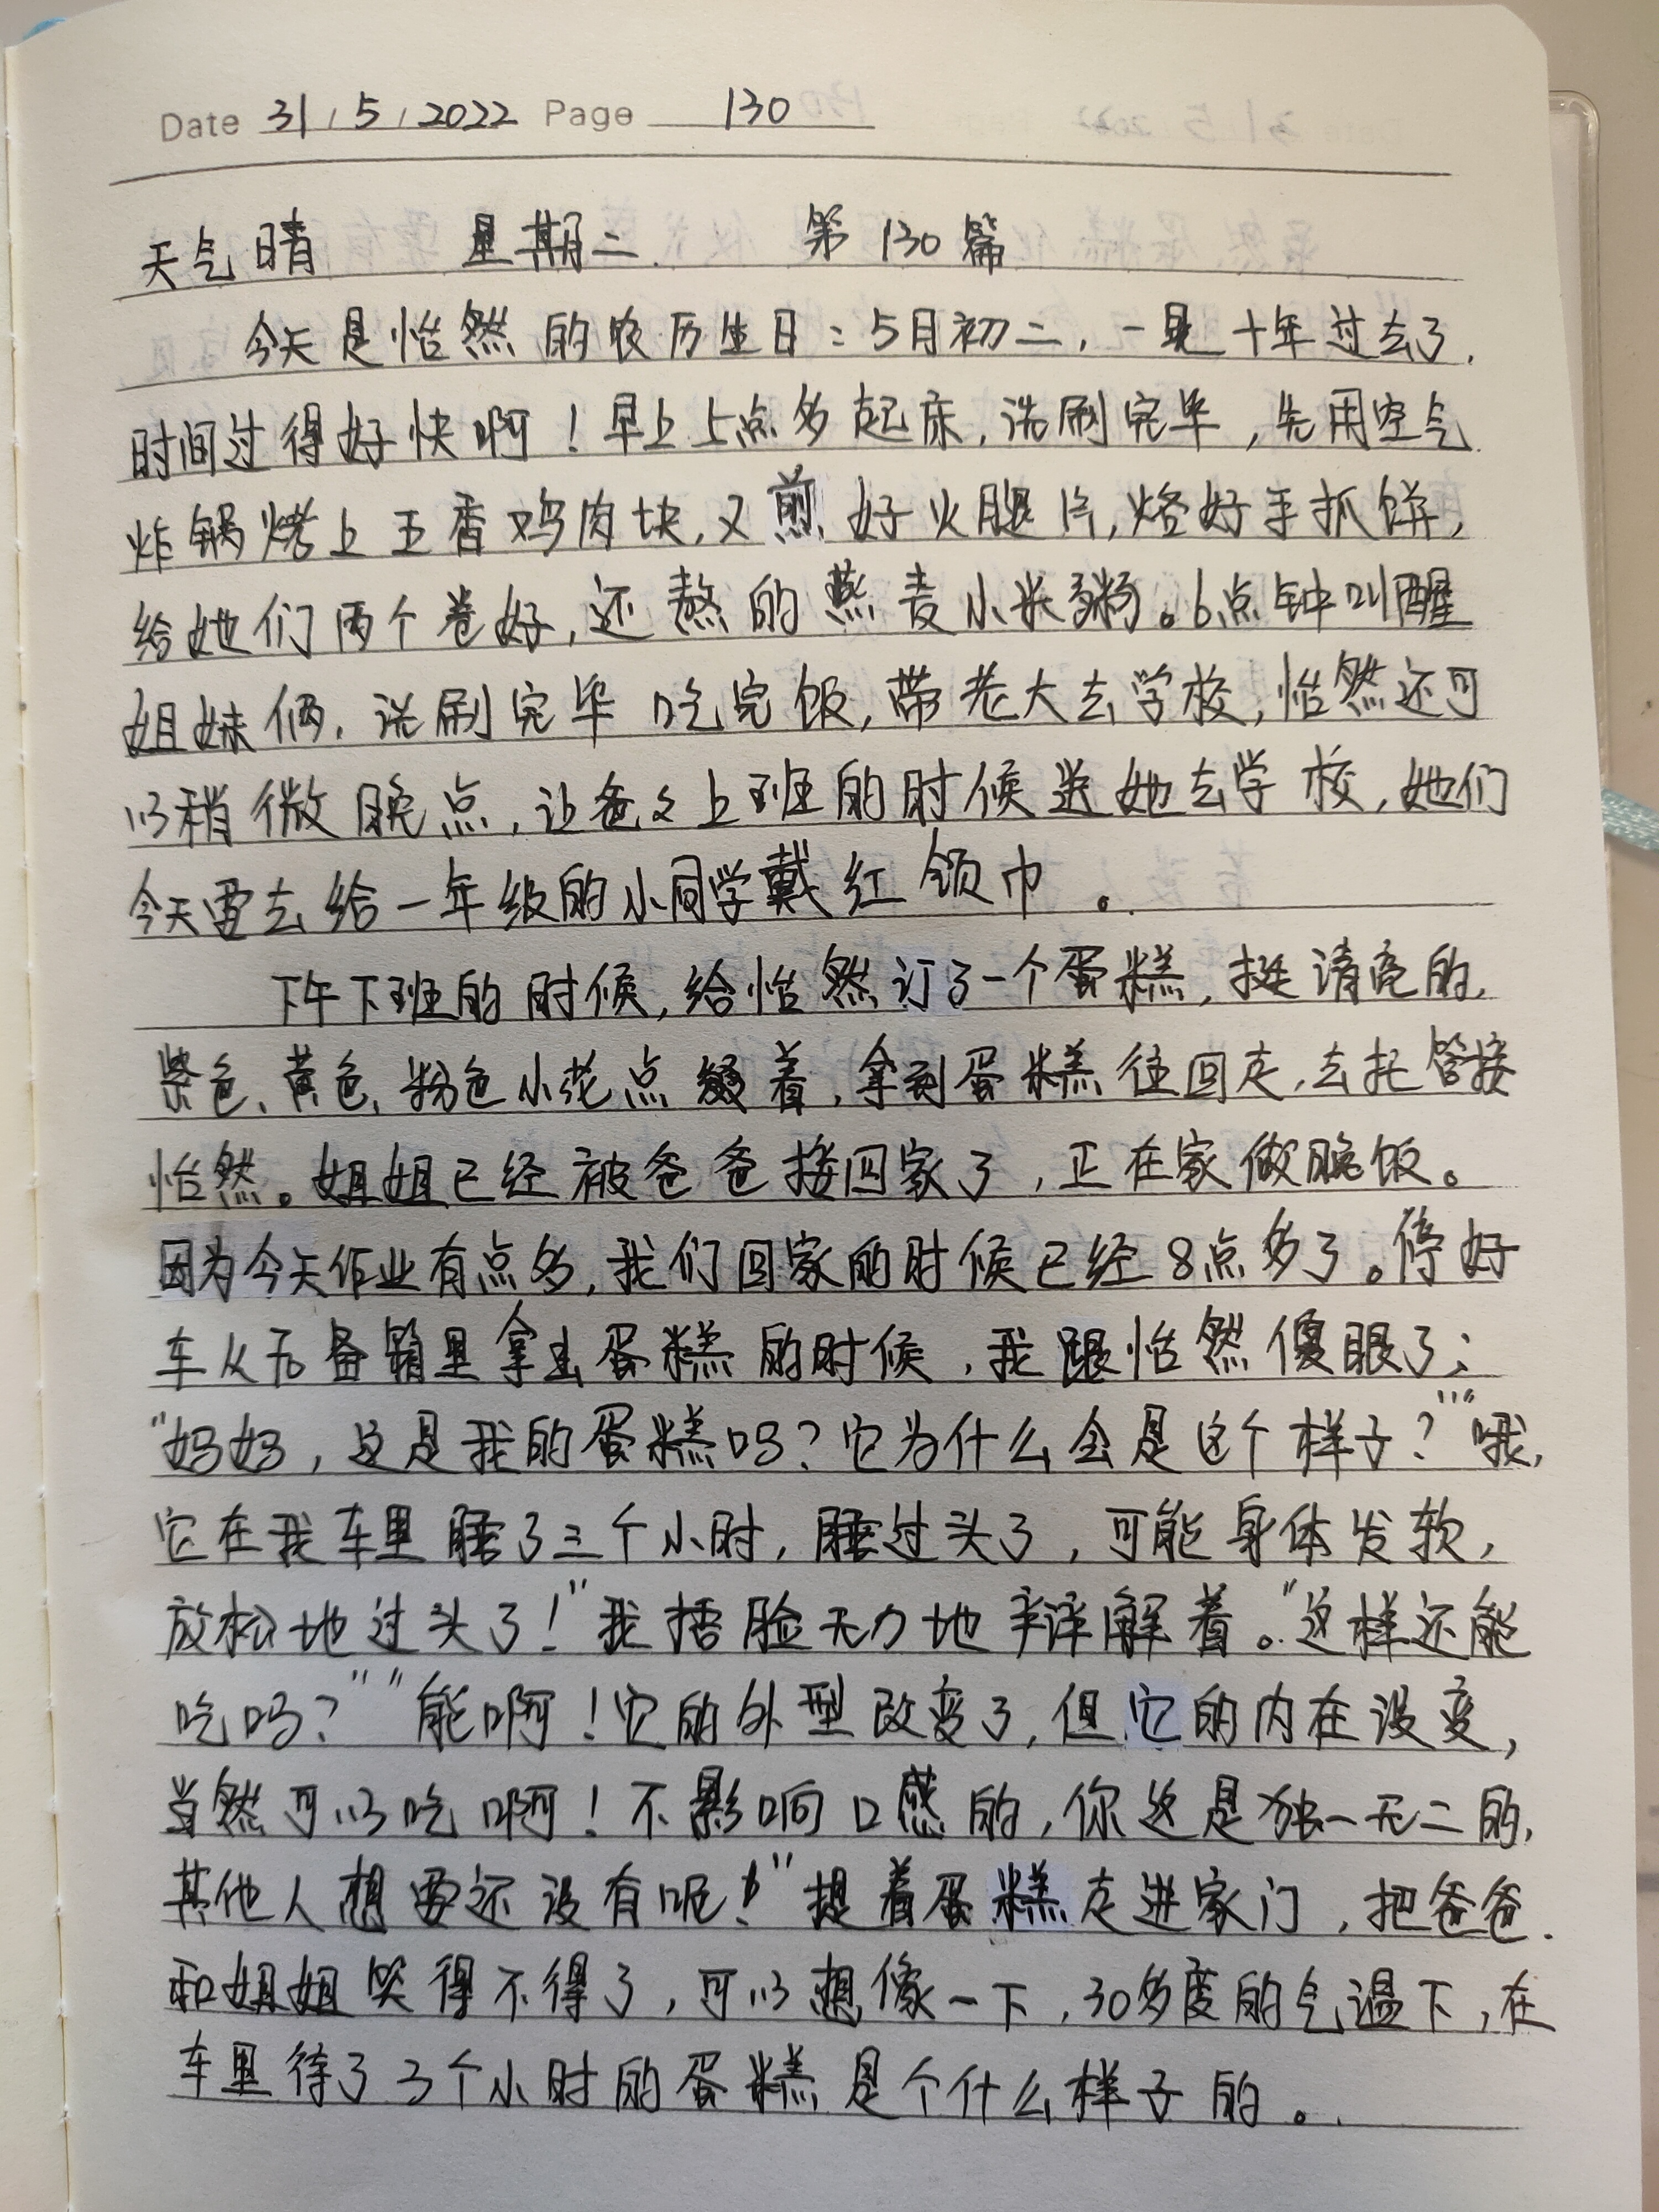 Date 31 / 5 / 2022 Page 130
天气晴 星期二 第130篇
今天是怡然的农历生日：5月初二，一晃十年过去了，
时间过得好快啊！早上5点多起床，洗刷完毕，先用空气
炸锅烤上五香鸡肉块，又煎好火腿片，烙好手抓饼，
给她们两个卷好，还熬的燕麦小米粥。6点钟叫醒
姐妹俩，洗刷完毕吃完饭，带老大去学校，怡然还可
以稍微晚点，让爸爸上班的时候送她去学校，她们
今天要去给一年级的小同学戴红领巾。
下午下班的时候，给怡然订了一个蛋糕，挺清亮的，
紫色、黄色、粉色小花点缀着，拿到蛋糕往回走，去托管接
怡然。姐姐已经被爸爸接回家了，正在家做晚饭。
因为今天作业有点多，我们回家的时候已经8点多了。停好
车从后备箱里拿出蛋糕的时候，我跟怡然傻眼了：
“妈妈，这是我的蛋糕吗？它为什么会是这个样子？”“哦，
它在我车里睡了三个小时，睡过头了，可能身体发软，
放松地过头了！”我捂脸无力地详解着。“这样还能
吃吗？”“能啊！它的外型改变了，但它的内在没变，
当然可以吃啊！不影响口感的，你这是独一无二的，
其他人想要还没有呢！”提着蛋糕走进家门，把爸爸
和姐姐笑得不得了，可以想像一下，30多度的气温下，在
车里待了3个小时的蛋糕是个什么样子的。